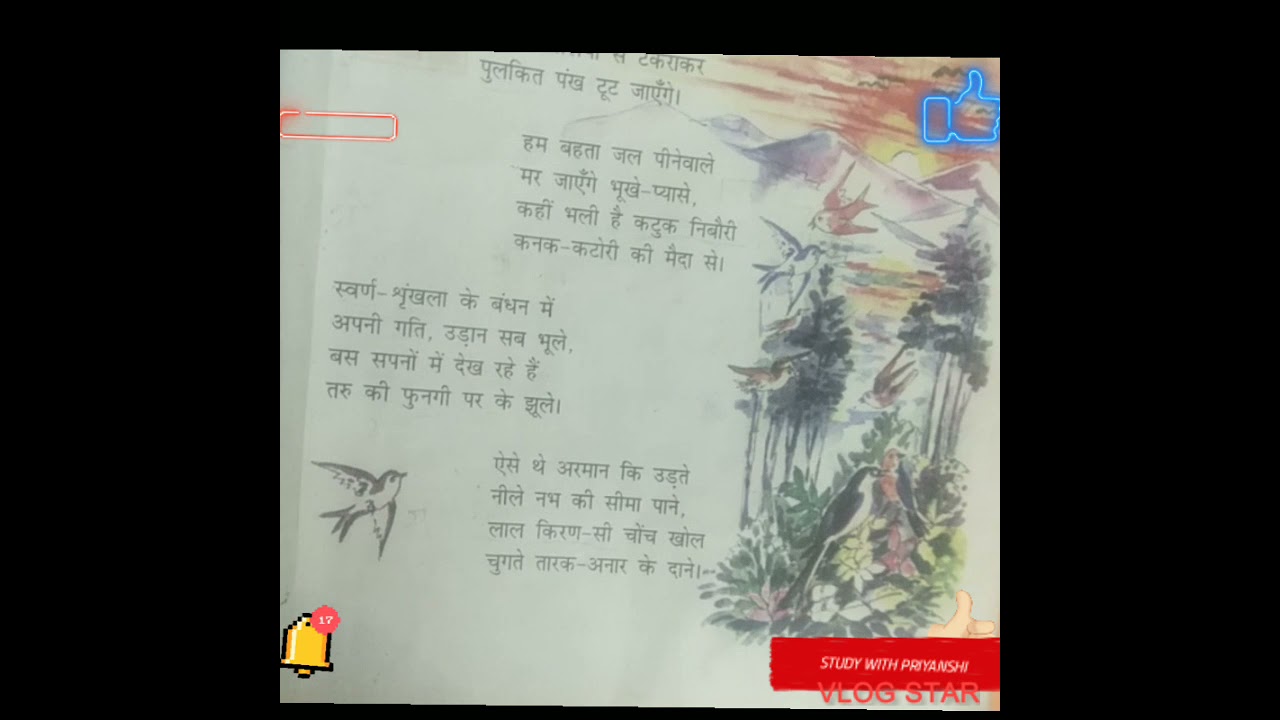 से टकराकर
पुलकित पंख टूट जाएँगे।
हम बहता जल पीनेवाले
मर जाएँगे भूखे-प्यासे,
कहीं भली है कटुक निबौरी
कनक-कटोरी की मैदा से।
स्वर्ण-शृंखला के बंधन में
अपनी गति, उड़ान सब भूले,
बस सपनों में देख रहे हैं
तरु की फुनगी पर के झूले।
ऐसे थे अरमान कि उड़ते
नीले नभ की सीमा पाने,
लाल किरण-सी चोंच खोल
चुगते तारक-अनार के दाने।
17
STUDY WITH PRIYANSHI
VLOG STAR